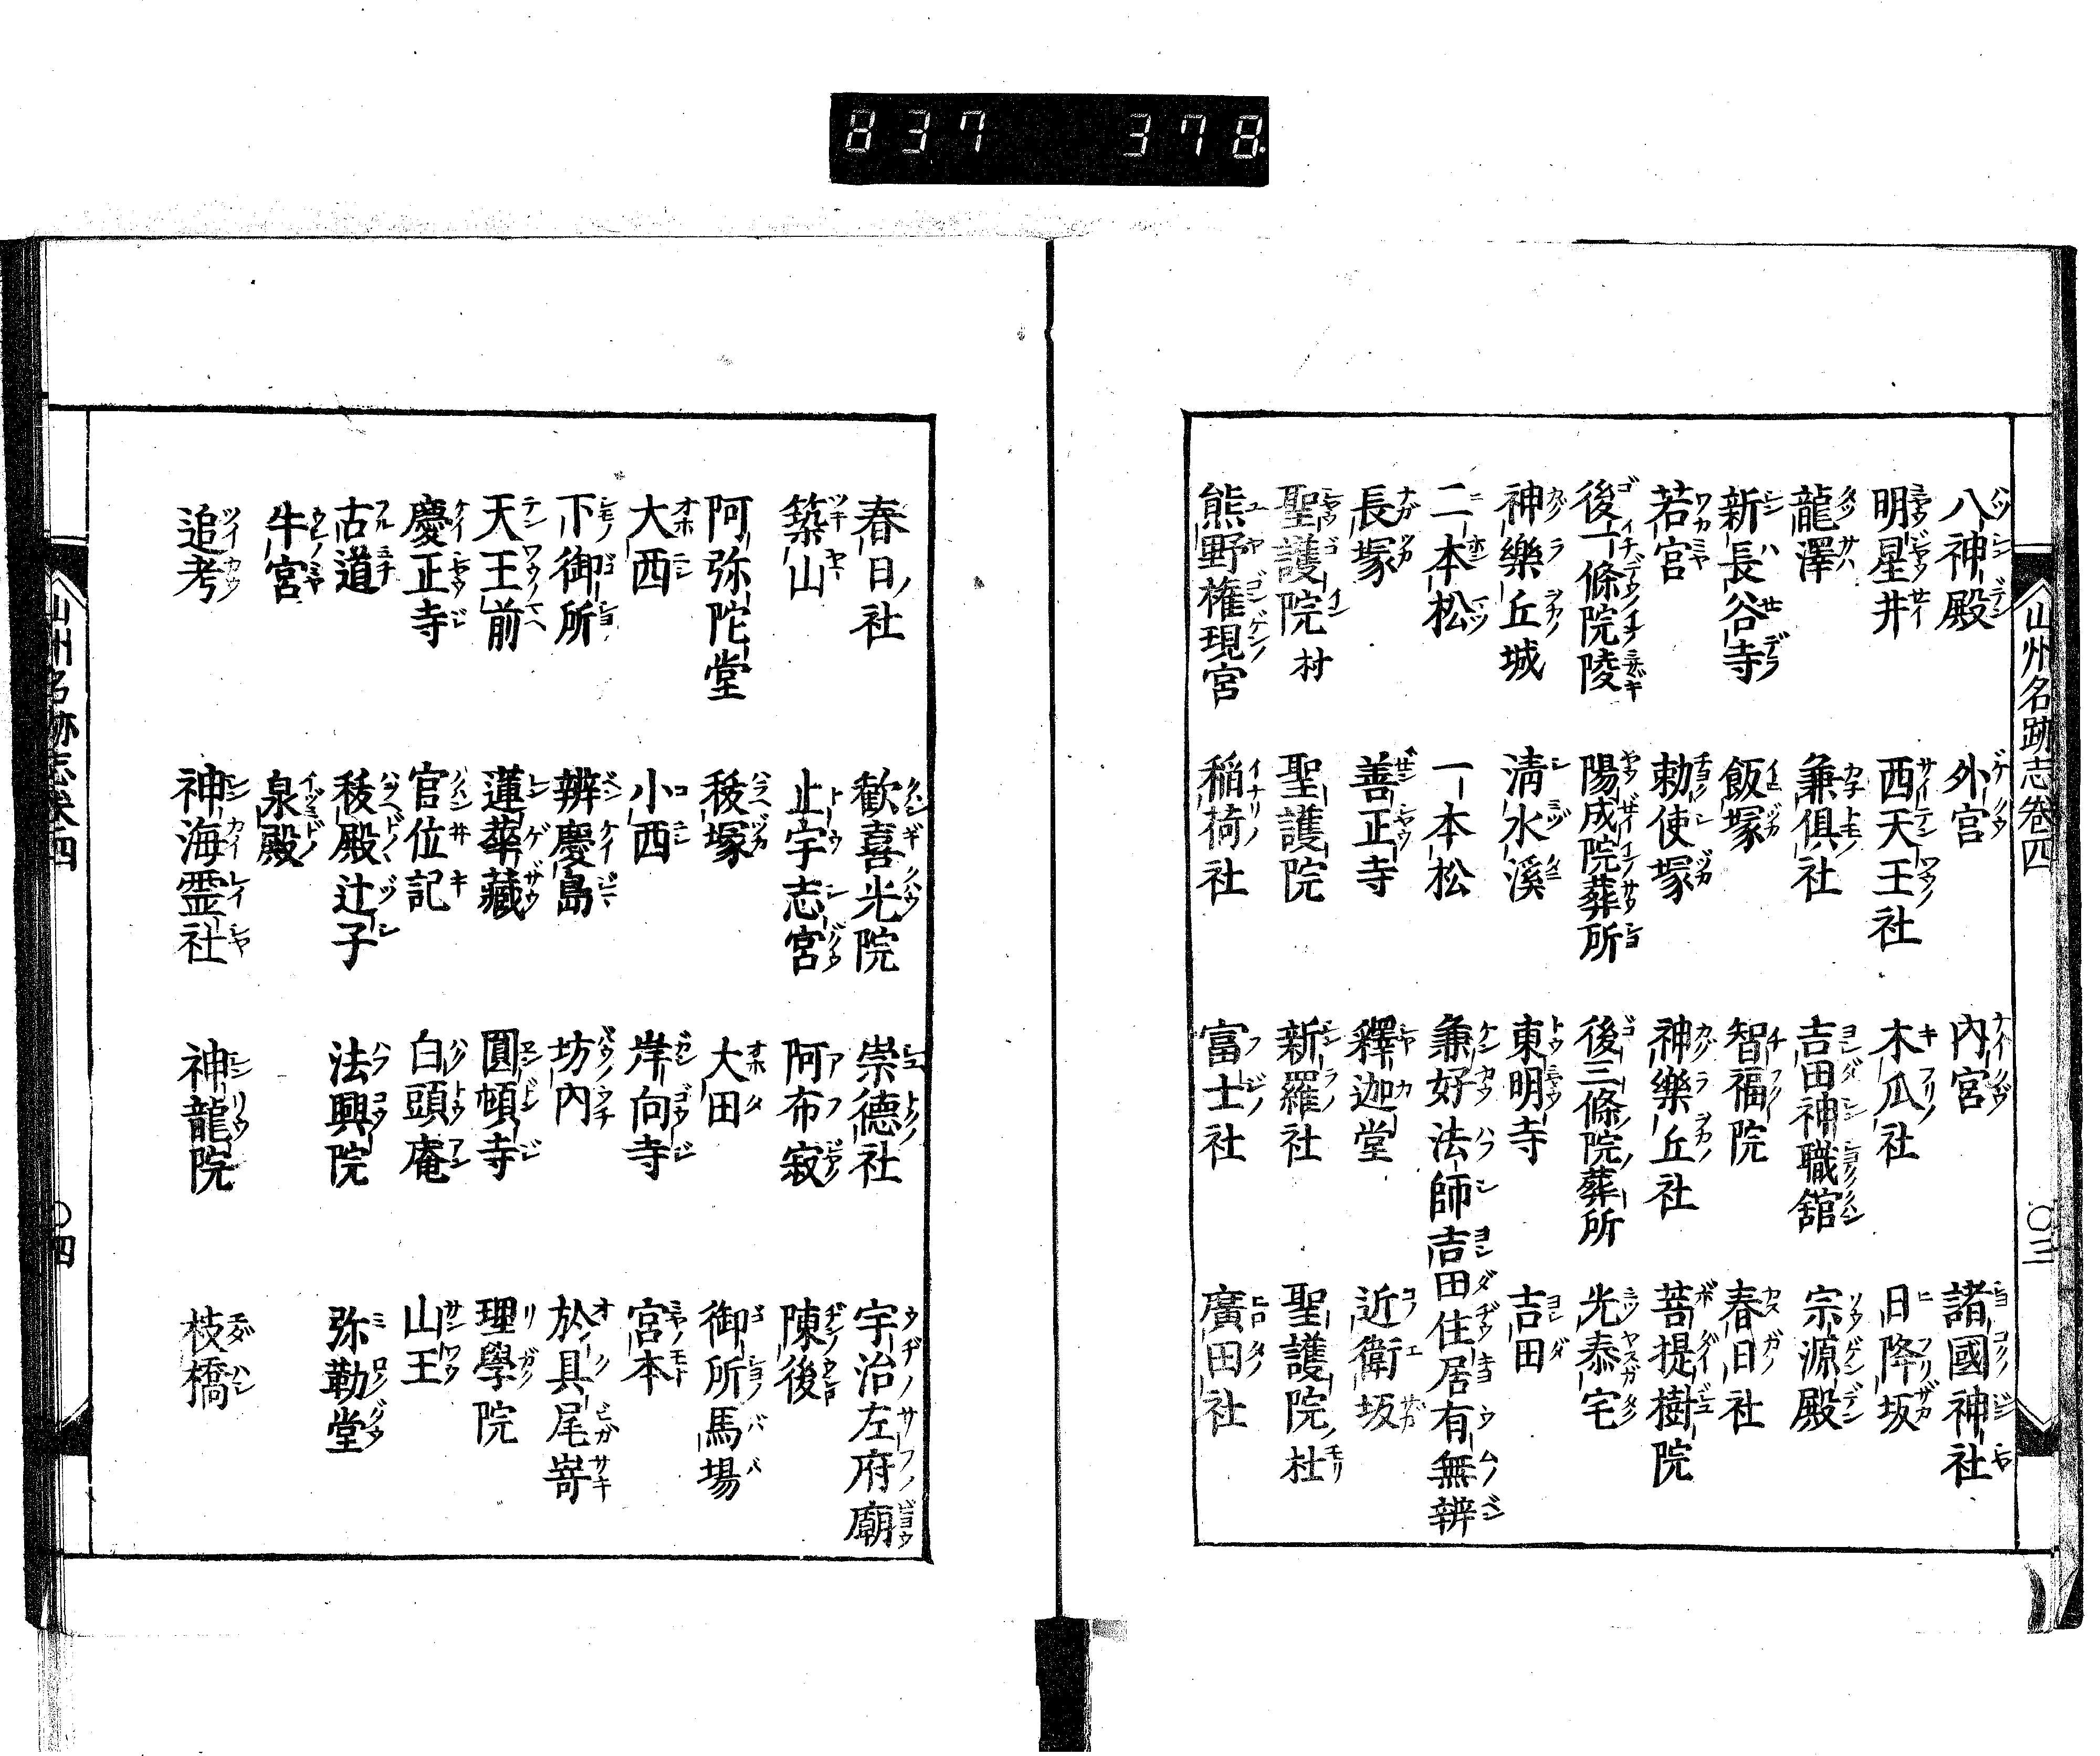 837 378.
山州名跡志卷四 〇三
八神殿 外宮 內宮 諸國神社
明星井 西天王社 木瓜社 日降坂
龍澤 兼俱社 吉田神職舘 宗源殿
新長谷寺 飯塚 智福院 春日社
若宮 勅使塚 神樂丘社 菩提樹院
後一條院陵 陽成院葬所 後三條院葬所 光泰宅
神樂丘城 清水溪 東明寺 吉田
二本松 一本松 兼好法師吉田住居有無辨
長塚 善正寺 釋迦堂 近衛坂
聖護院村 聖護院 新羅社 聖護院杜
熊野権現宮 稲荷社 富士社 廣田社
春日ノ社 歓喜光院 崇德社 宇治左府廟
築山 止宇志宮 阿布寂 陳後
阿弥陀堂 秡塚 大田 御所馬場
大西 小西 岸向寺 宮本
下御所 辨慶島 坊內 於具尾嵜
天王前 蓮華藏 圓頓寺 理學院
慶正寺 官位記 白頭庵 山王
古道 秡殿辻子 法興院 弥勒堂
牛宮 泉殿
追考 神海霊社 神龍院 枝橋
山州名跡志卷四 〇四